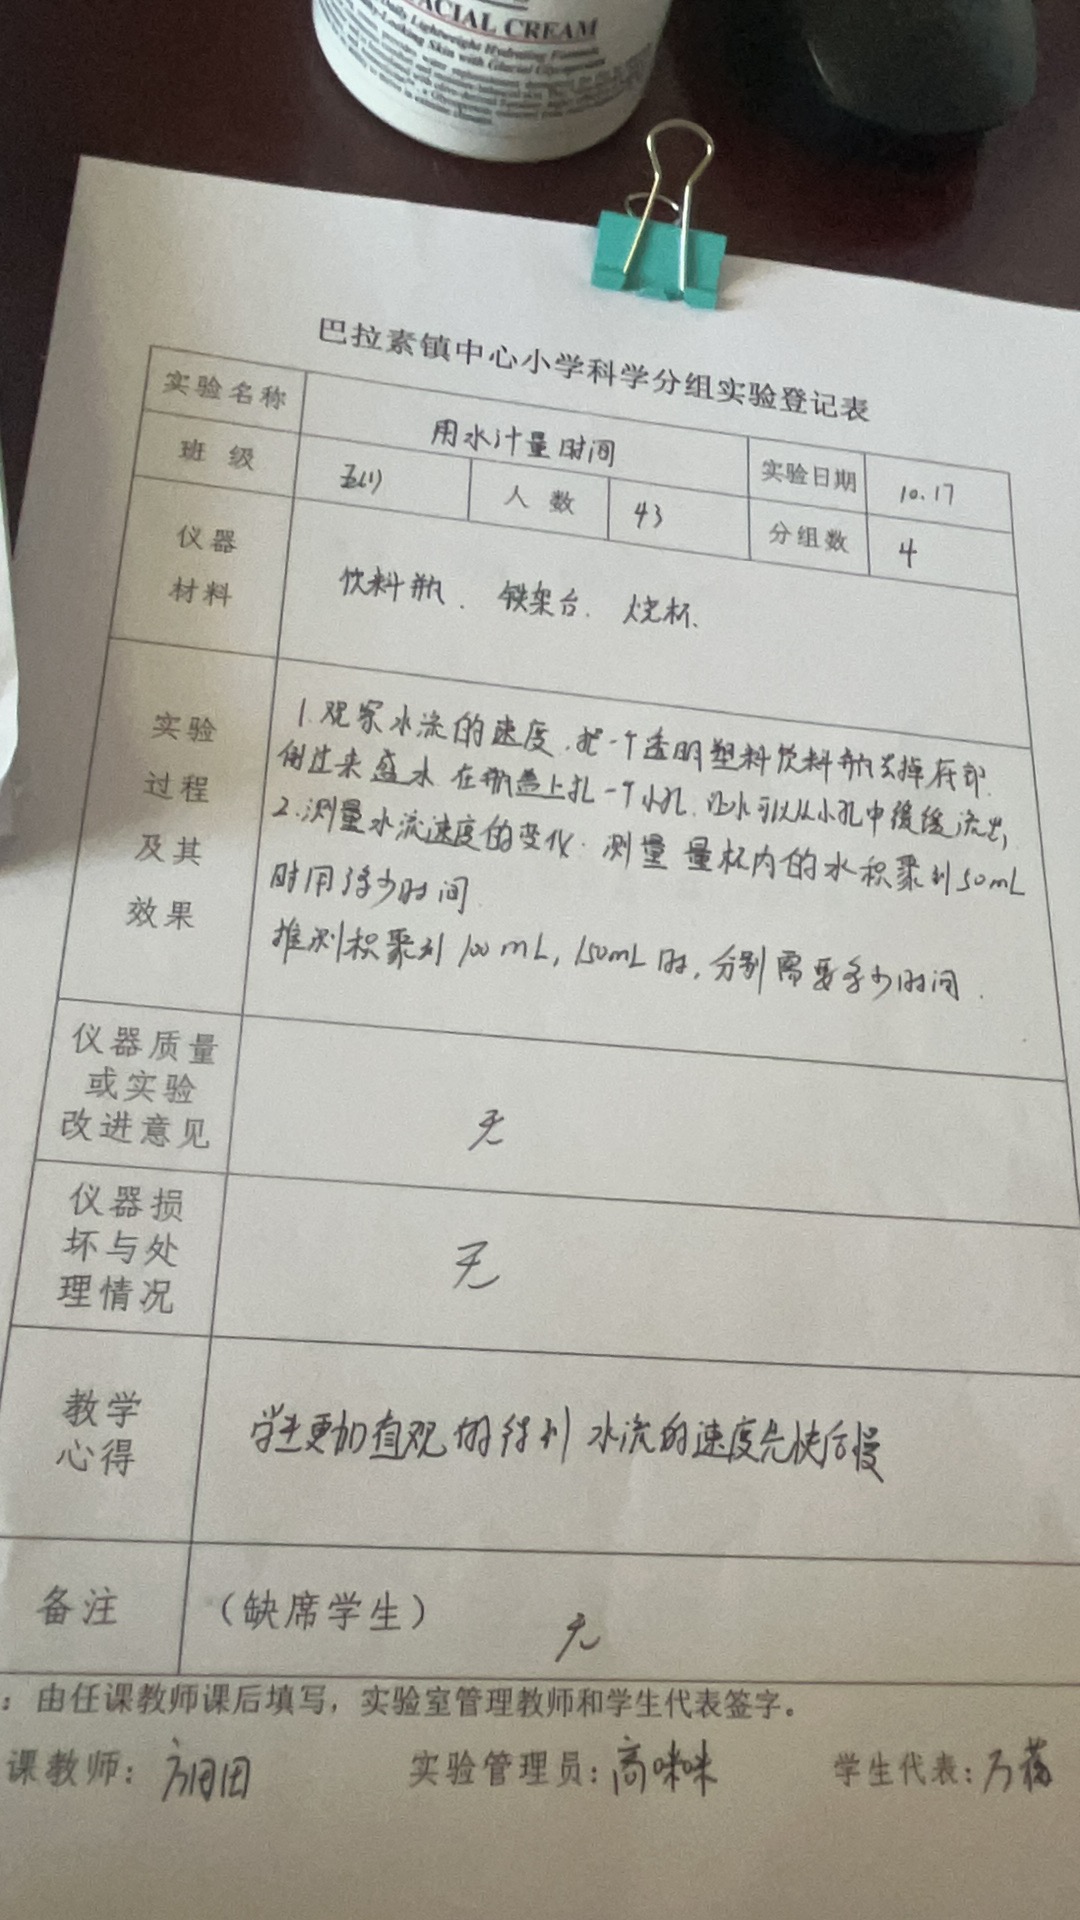 ACIAL CREAM
Daily Lightweight Hydrating Formula
巴拉素镇中心小学科学分组实验登记表
实验名称 用水计量时间 实验日期 10.17
班 级 五(1) 人 数 43 分组数 4
仪器
材料
饮料瓶、铁架台、烧杯、
实验
过程
及其
效果
1.观察水流的速度、把一个透明塑料饮料瓶去掉底部
倒过来盛水 在瓶盖上扎一个小孔、让水可以从小孔中缓缓流出
2.测量水流速度的变化、测量 量杯内的水积聚到50mL
时用多少时间
推测积聚到100mL,150mL时,分别需要多少时间.
仪器质量
或实验
改进意见
无
仪器损
坏与处
理情况
无
教学
心得
学生更加直观的得到 水流的速度先快后慢
备注 (缺席学生) 无
:由任课教师课后填写,实验室管理教师和学生代表签字。
课教师: 实验管理员:高咪咪 学生代表: